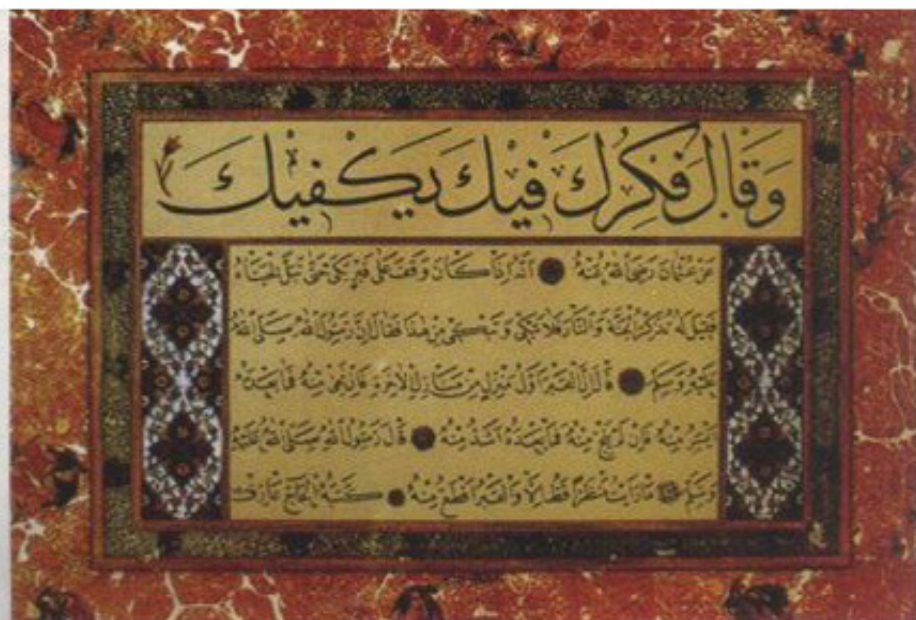 وَقَالَ فَكْرُكَ فِيْكَ يَكْفِيْكَ
عن عثمان رضي الله عنه أنه إذا كان وقف على قبر بكى حتى تبل لحياه
فقيل له تذكر الجنة والنار فلا تبكي وتبكي من هذا فقال إن رسول الله صلى الله
عليه وسلم قال إن القبر أول منزل من منازل الآخرة فإن نجى منه فما بعده
أيسر منه فإن لم ينج منه فما بعده أشد منه قال رسول الله صلى الله عليه
وسلم ما رأيت منظرا قط إلا والقبر أفظع منه كتبه الحاج عارف